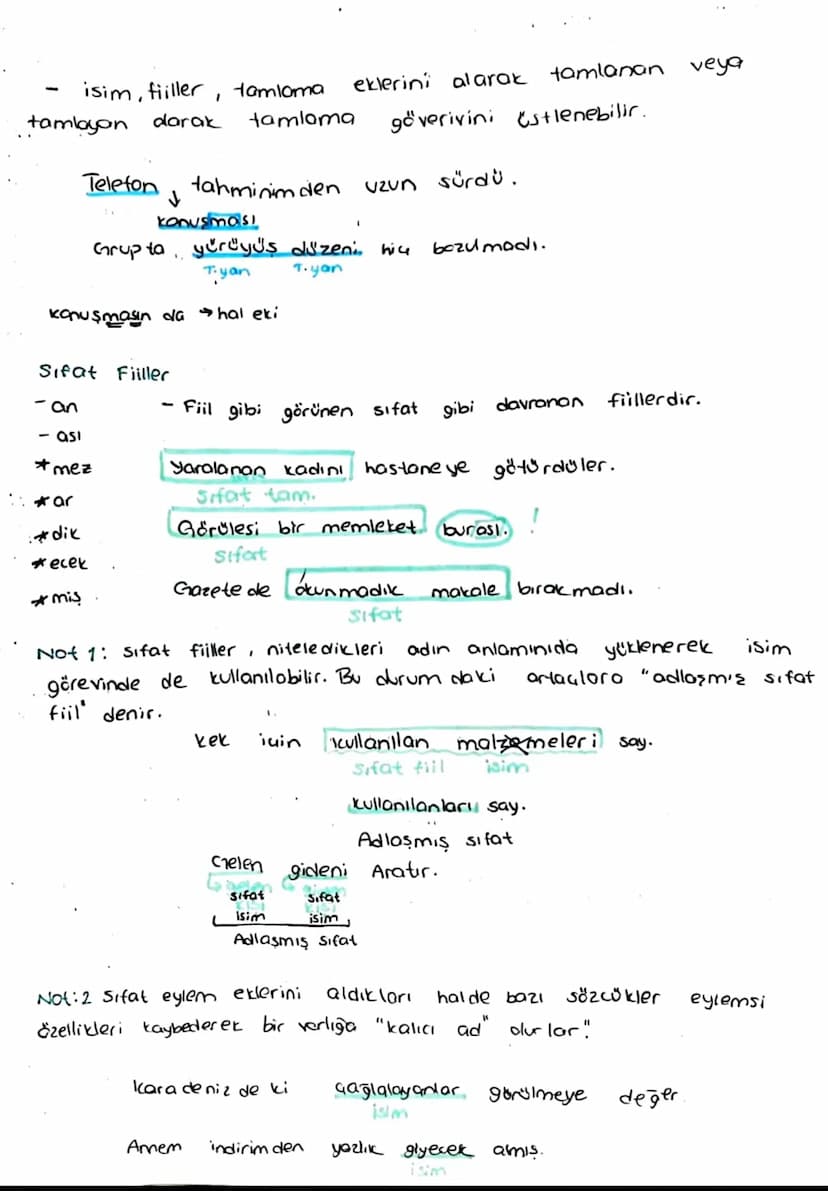 - isim, fiiller, tamlama eklerini alarak tamlanan veya
tamlayan olarak tamlama göverivini üstlenebilir.
Telefon ↓ tahminimden uzun sürdü.
konuşması
Grupta yürüyüş düzeni hiç bozulmadı.
T.yan T.yan
konuşmasın da → hal eki
Sıfat Fiiller
-an - Fiil gibi görünen sıfat gibi davranan fiillerdir.
-ası
*mez Yaralanan kadını hastaneye götürdüler.
*ar Sıfat tam.
*dik Görülesi bir memleket burası. !
*ecek Sıfat
*miş Gazetede okunmadık makale bırakmadı.
sıfat
Not 1: Sıfat fiiller, niteledikleri adın anlamınıda yüklenerek isim
görevinde de kullanılabilir. Bu durum daki ortaçlara "adlaşmış sıfat
fiil" denir.
Kek için kullanılan malzemeleri say.
Sıfat fiil isim
Kullanılanları say.
Adlaşmış sıfat
Gelen gideni Aratır.
sıfat sıfat
isim isim
Adlaşmış sıfat
Not:2 Sıfat eylem eklerini aldıkları halde bazı sözcükler eylemsi
özellikleri kaybederek bir varlığa "kalıcı ad" olurlar."
Karadeniz de ki çağlalayanlar görülmeye değer
isim
Annem indirimden yazlık giyecek almış.
isim